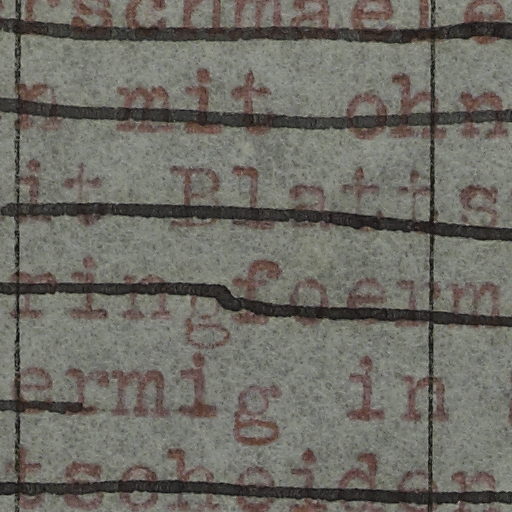 rschmaele
n mit ohn
it Blatts
ringfoerm
ermig in
tscheiden